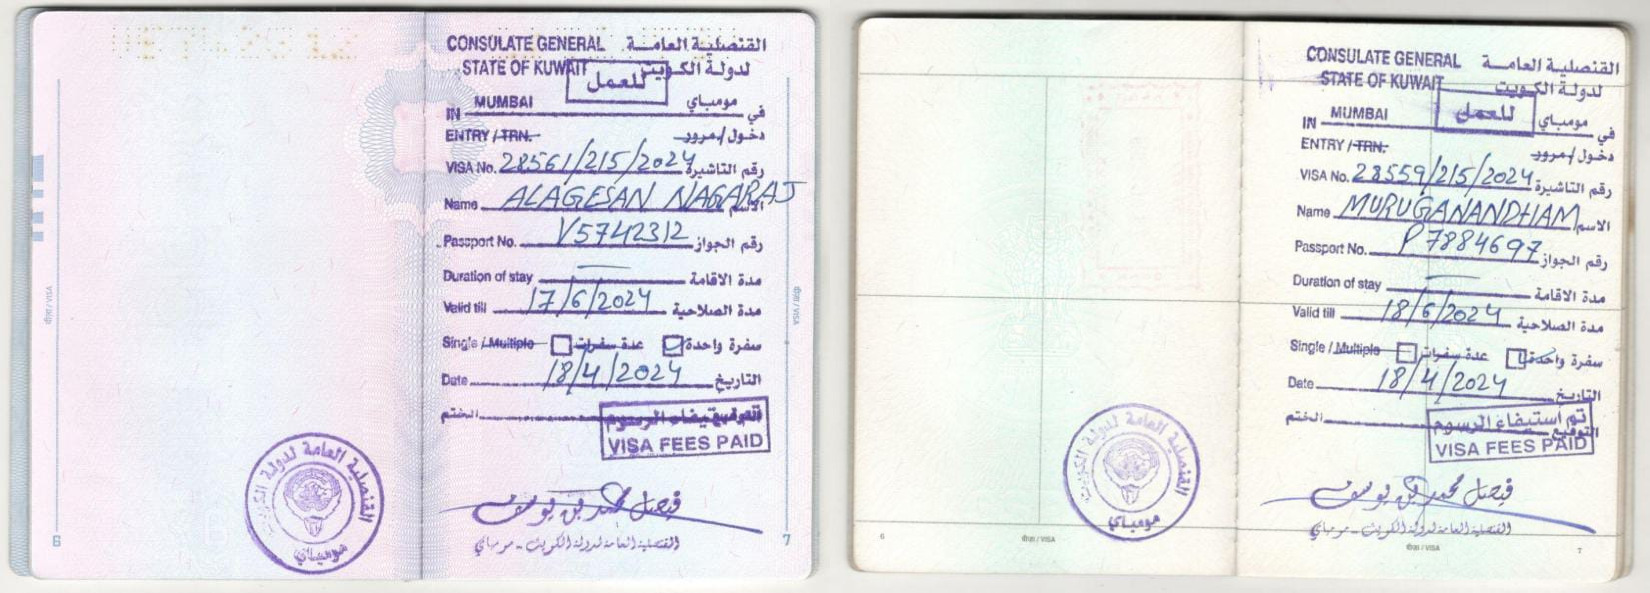 CONSULATE GENERAL القنصلية العامة
STATE OF KUWAIT لدولة الكويت
للعمل
IN MUMBAI مومباي في
ENTRY / TRN. دخول / مرور
VISA No. 28561/215/2024 رقم التاشيرة
Name ALAGESAN NAGARAJ الاسم
Passport No. V5742312 رقم الجواز
Duration of stay — مدة الاقامة
Valid till 17/6/2024 مدة الصلاحية
Single / Multiple عدة سفرات سفرة واحدة
Date 18/4/2024 التاريخ
الختم
VISA FEES PAID
القنصلية العامة لدولة الكويت
مومباي
فيصل محمد بن يوسف
القنصلية العامة لدولة الكويت - مومباي
6
7
VISA / वीज़ा
VISA / वीज़ा
CONSULATE GENERAL القنصلية العامة
STATE OF KUWAIT لدولة الكويت
للعمل
IN MUMBAI مومباي في
ENTRY / TRN. دخول / مرور
VISA No. 28559/215/2024 رقم التاشيرة
Name MURUGANANDHAM الاسم
Passport No. P7884697 رقم الجواز
Duration of stay — مدة الاقامة
Valid till 18/6/2024 مدة الصلاحية
Single / Multiple عدة سفرات سفرة واحدة
Date 18/4/2024 التاريخ
الختم التوقيع
تم استيفاء الرسوم
VISA FEES PAID
القنصلية العامة لدولة الكويت
مومباي
فيصل محمد بن يوسف
القنصلية العامة لدولة الكويت - مومباي
6
वीज़ा / VISA
वीज़ा / VISA
7